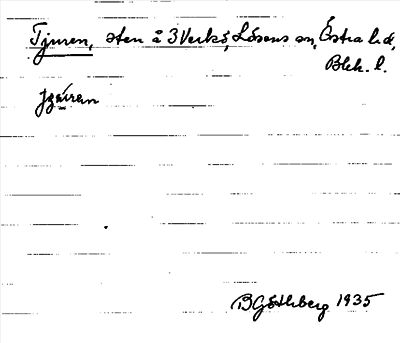 Tjuren, sten å 3 Verkö, Lösens sn, Östra hd,
Blek. l.
B Göthberg 1935